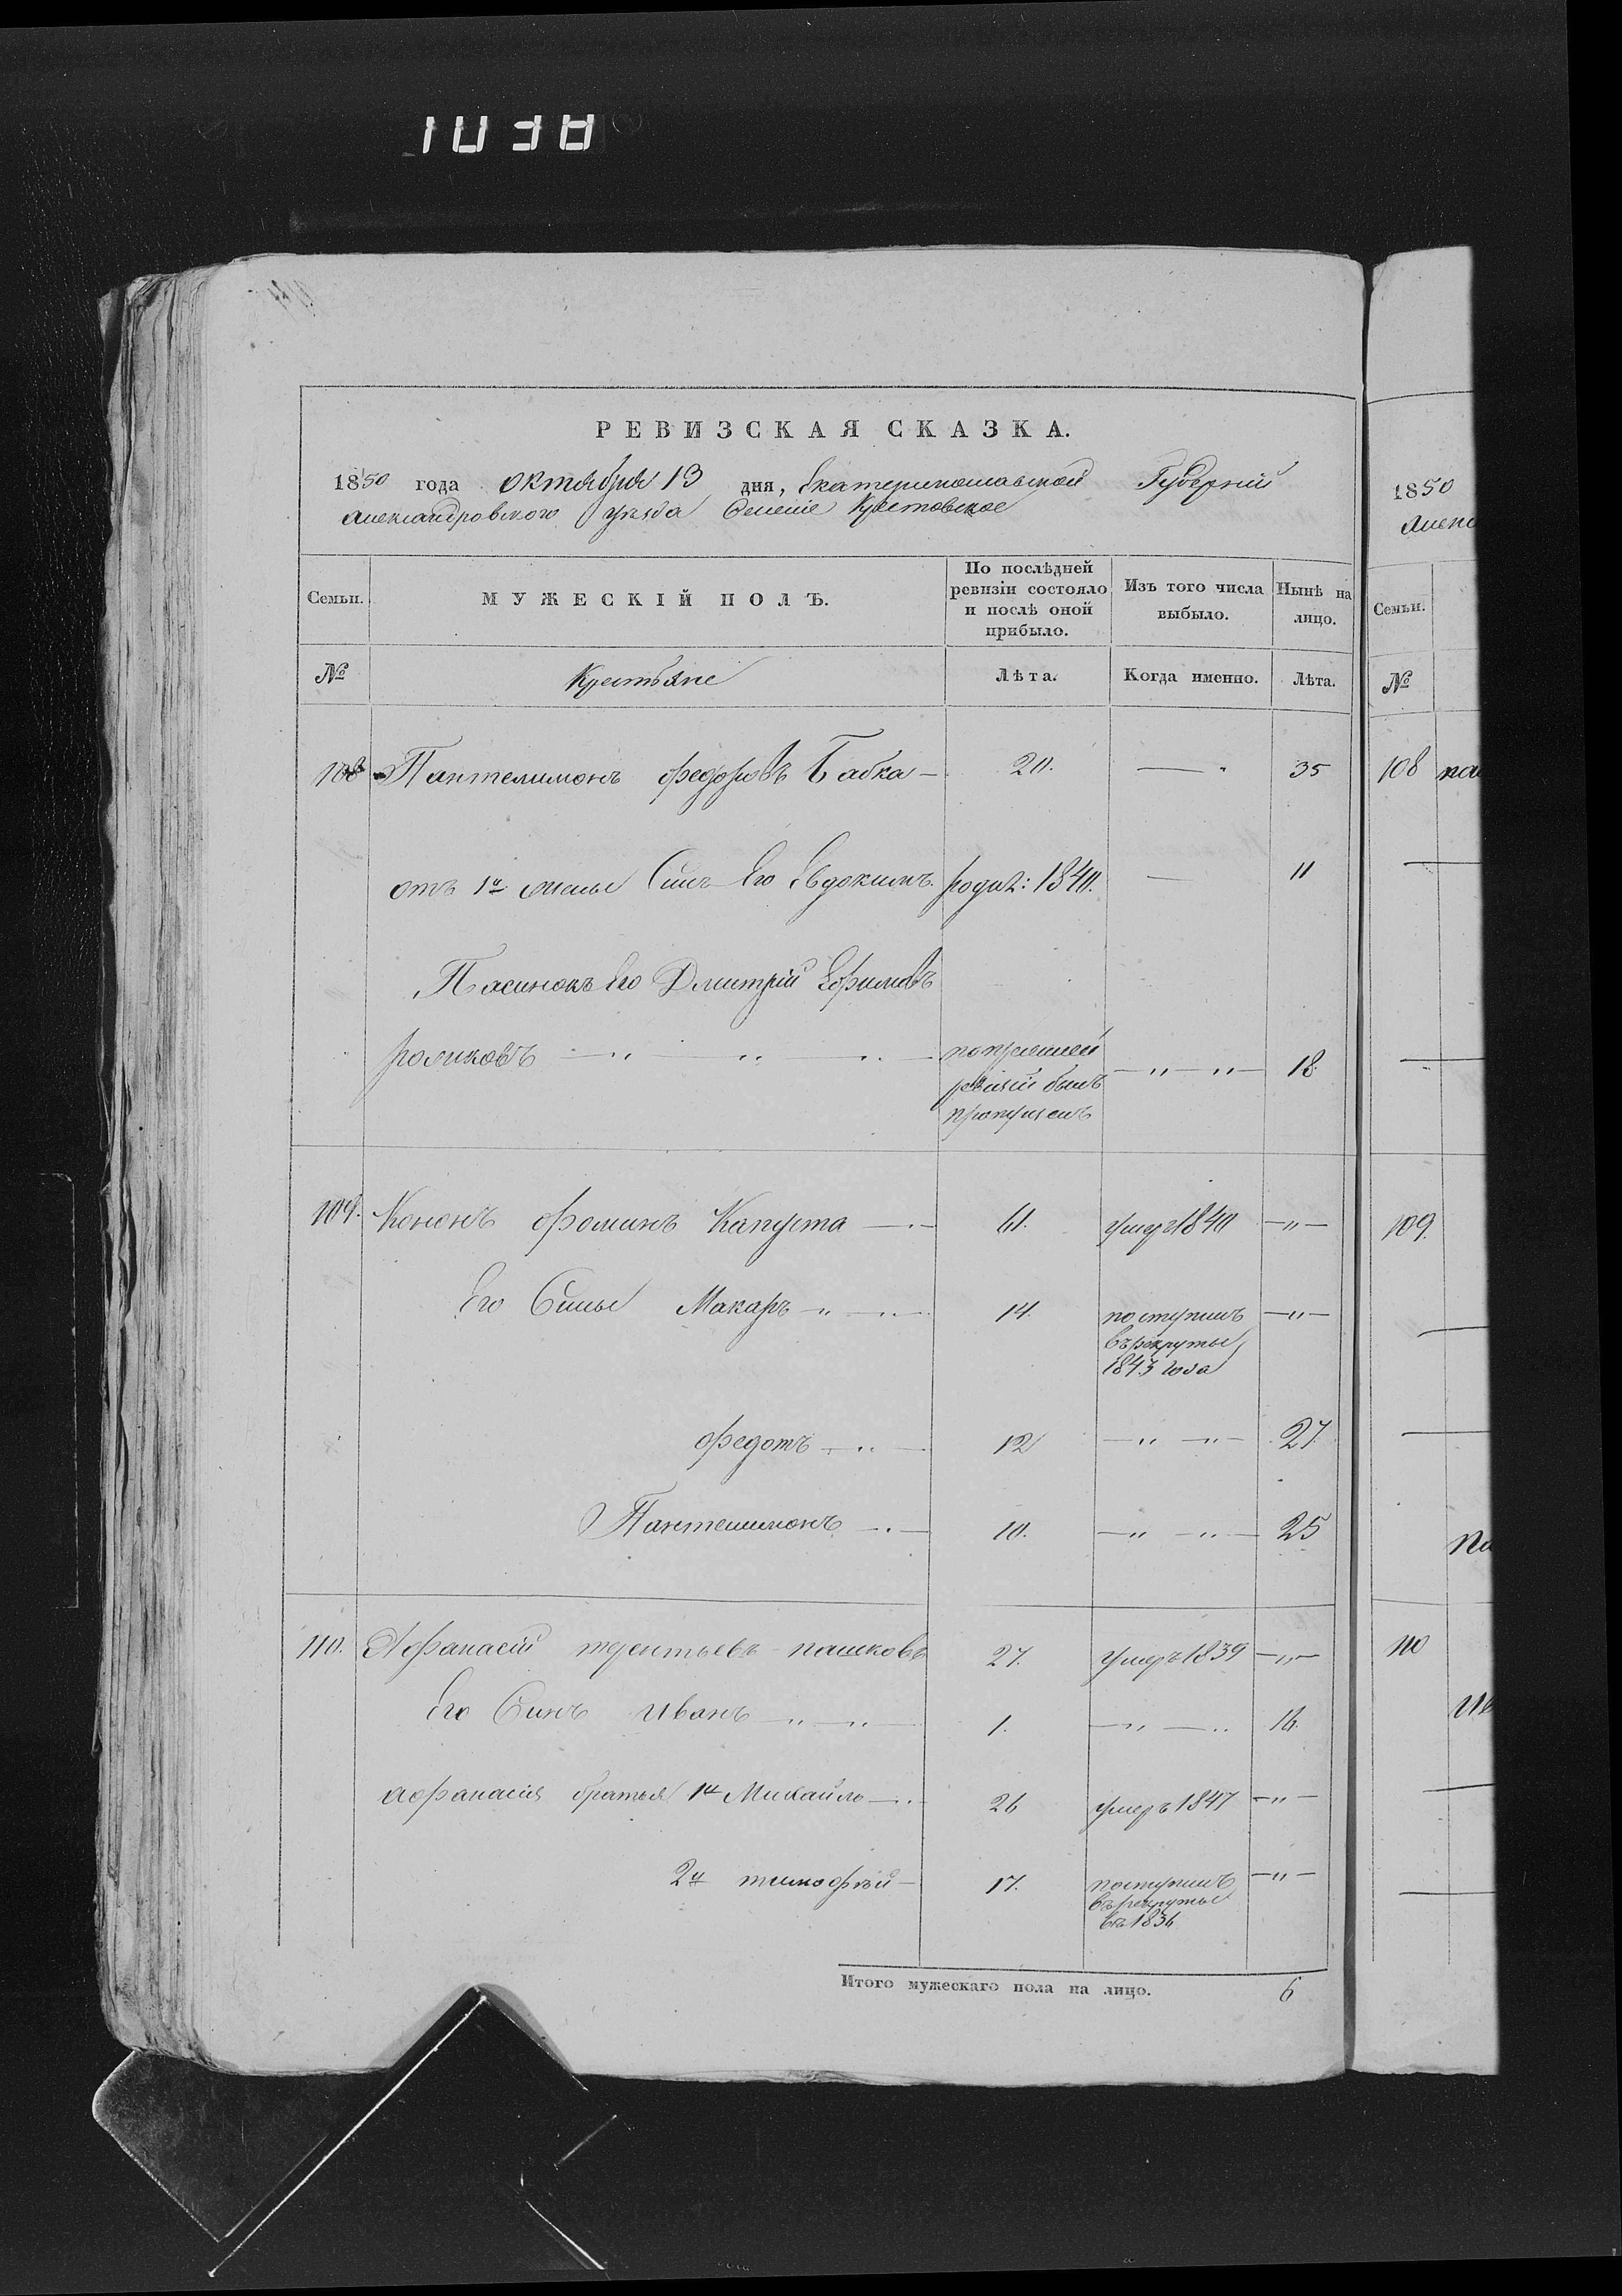 РЕВИЗСКАЯ СКАЗКА.
1850 года октября 13 дня, Екатеринославской Губерніи
Александровского уѣзда Селеніе Крестовское
Семьи. МУЖЕСКІЙ ПОЛЪ. По послѣдней ревизіи состояло и послѣ оной прибыло. Изъ того числа выбыло. Нынѣ на лицо.
№ Крестьяне Лѣта. Когда именно. Лѣта.
108 Пантелимонъ Федоровъ Бабка — 20. — 35
отъ 1й жены Синъ Его Евдокимъ. родил: 1840. — 11
Пасинокъ Его Дмитрій Ефимовъ
роликовъ — " " " — попрежней ревизіи былъ пропущенъ — " — " — 18
109. Кононъ Фоминъ Капуста — " — 61. умеръ 1840 — " —
Его Сины Макаръ " — " — 14. поступилъ
въ рекруты
1843 года — " —
Федотъ — " — 12 — " — " — 27.
Пантелимонъ — " — 10. — " — " — 25
110. Афанасій терентьевъ пашковъ 27. умеръ 1839 — " —
Его Синъ Иванъ " — " — 1. — " — " 16.
афанасія братья 1й Михайло — " 26 умеръ 1847 — " —
2й тимофѣй — 17. поступилъ
въ рекруты
въ 1836 — " —
Итого мужескаго пола на лицо. 6
1850
Алекс
Семьи.
№
108 па
109.
Па
110
Ив